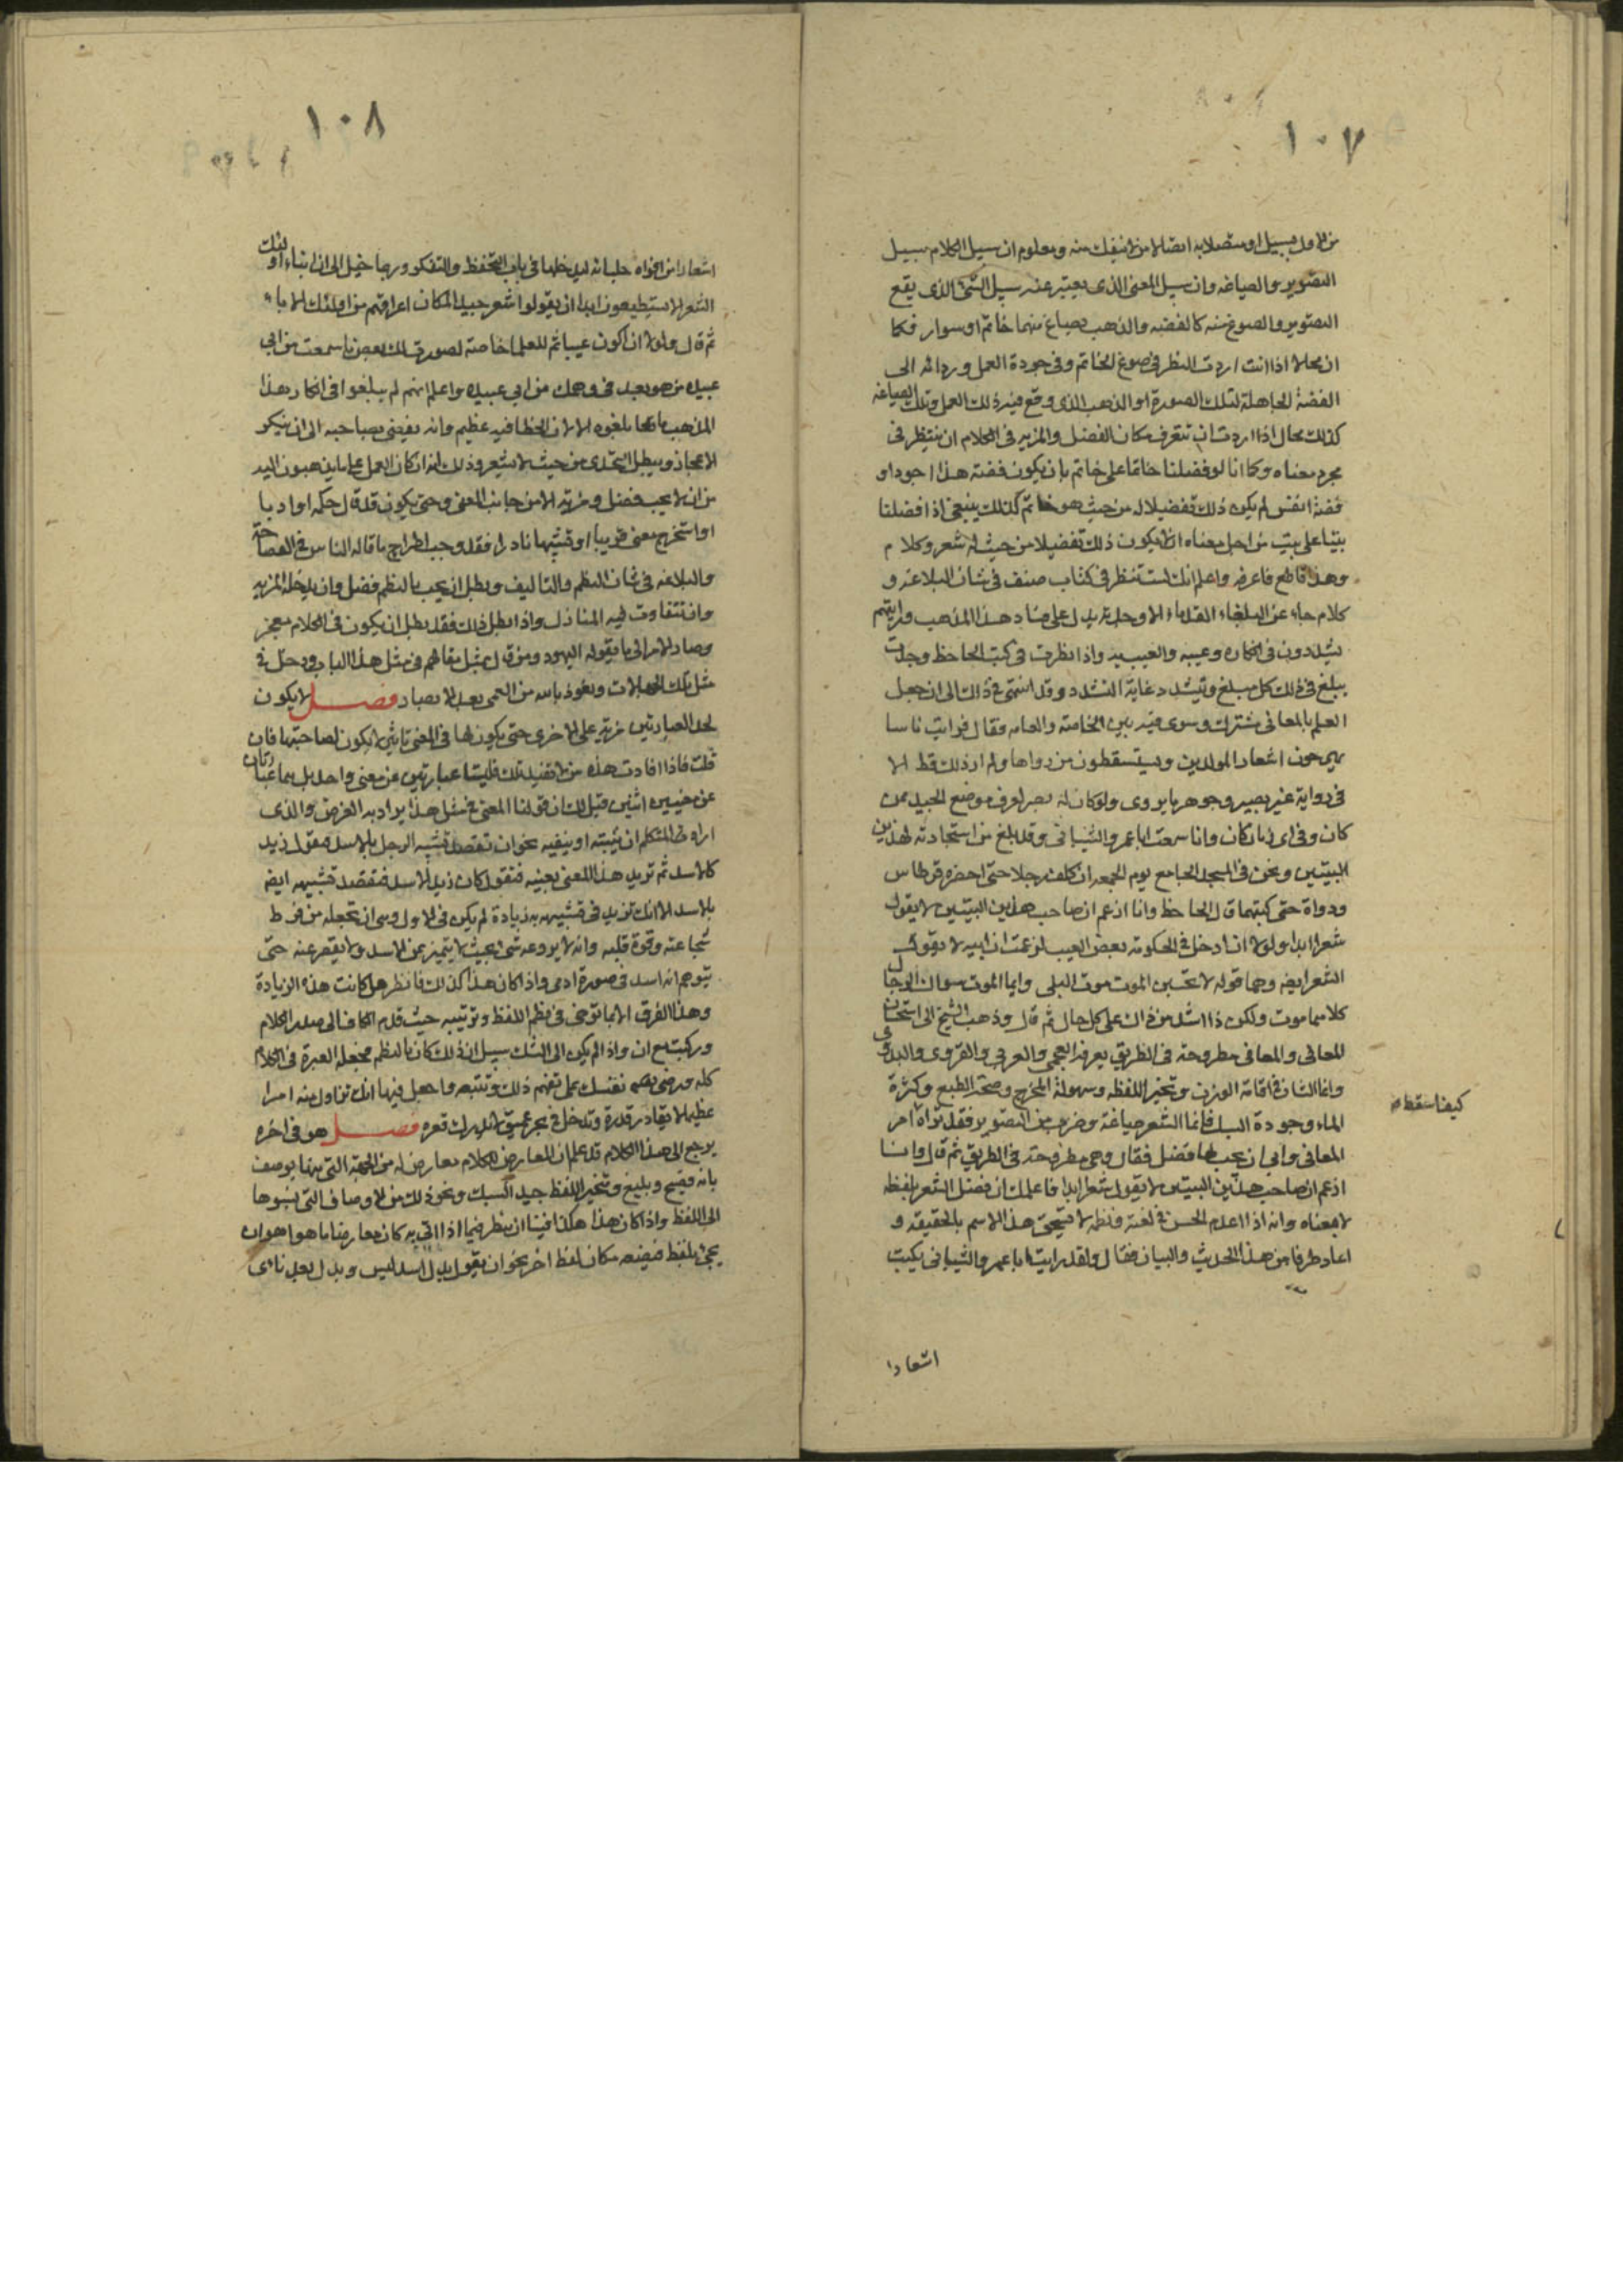 ١٠٧
من الاول بسبيل او متصلا به اتصالا من لا ينفك منه ومعلوم ان سبيل الكلام سبيل
التصوير والصياغه وان سبيل المعنى الذى يعبر عنه سبيل الشئ الذى يقع
التصوير والصوغ منه كالفضه والذهب يصاغ منهما خاتم او سوار فكما
ان محالا اذا انت اردت النظر فى صوغ الخاتم وفى جودة العمل ورداءته الى
الفضة الحاملة لتلك الصورة او الذهب الذى وقع فيه ذلك العمل وتلك الصياغه
كذلك محال اذا اردت ان تتعرف مكان الفضل والمزيه فى الكلام ان تنظر فى
مجرد معناه وكما انا لو فضلنا خاتما على خاتم بان يكون فضة هذا اجود او
فضة انفس لم يكن ذلك تفضيلا له من حيث هو خاتم كذلك ينبغى اذا فضلنا
بيتا على بيت من اجل معناه ان لا يكون ذلك تفضيلا من حيث له شعر وكلام
وهذا قاطع فاعرفه واعلم انك لست تنظر فى كتاب صنف فى شان البلاغه و
كلام جاء عن البلغاء القدماء الا وجدته يدل على فساد هذا المذهب ورايتهم
يشددون فى انكاره وعيبه والعيب به واذا نظرت فى كتب الجاحظ وجدت
يبلغ فى ذلك كل مبلغ ويتشدد غاية التشدد وقد انتهى فى ذلك الى ان جعل
العلم بالمعانى مشترك وسوى فيه بين الخاصه والعامه فقال فرايت ناسا
يبهرجون اشعار المولدين ويستسقطون من رواها ولم ار ذلك قط الا
فى رواية غير بصير بجوهر ما يروى ولو كان له بصر لعرف موضع الجيد ممن
كان وفى اى زمان كان وانا سمعت ابا عمرو الشيبانى وقد بلغ من استجادته لهذين
البيتين ونحن فى المسجد الجامع يوم الجمعه ان كلف رجلا حتى احضره قرطاس
ودواة حتى كتبهما قال الجاحظ وانا ازعم ان صاحب هذين البيتين لا يقول
شعرا ابدا ولولا ان ادخل فى الحكومه بعض العيب لزعمت ان ابنه لا يقول
الشعر ايضه وهما قوله لا تحسبن الموت موت البلى وانما الموت سوال الرجال
كلاهما موت ولكن ذا اشد من ذاك على كل حال ثم قال وذهب الشيخ الى استحسان
المعانى والمعانى مطروحة فى الطريق يعرفه العجمى والعربى والقروى والبدوى
وانما الشان فى اقامة الوزن وتخير اللفظه وسهولة المخرج وصحة الطبع وكثرة
الماء وجودة السبك فانما الشعر صياغة وضرب من التصوير فقد تراه امر
المعانى وابى ان يجب لها فضل فقال وهى مطروحة فى الطريق ثم قال وانا
ازعم ان صاحب هذين البيتين لا يقول شعرا ابدا فاعلمك ان فضل الشعر بلفظه
لا بمعناه وانه اذا عدم الحسن فى لفظه ونظمه لا يستحق هذا الاسم بالحقيقه و
اعاد طرفا من هذا الحديث والبيان فقال ولقد رايت ابا عمرو الشيبانى يكتب
اشعارا
١٠٨
اشعارا من افواه جلسائه ليدخلها فى باب التحفظ والتفكر وربما خيل الى ان ابناء اولئك
الشعر لا يستطيعون ابدا ان يقولوا شعر جيد المكان اعراقهم من اولئك الاباء
ثم قال ولولا ان اكون عيبا ثم للعلما خاصة لصورت لك بعض ما سمعت من ابى
عبيده من هو بعد فى وهمك من ابى عبيده واعلم انهم لم يبلغوا فى انكار هذا
المذهب ما بلغوه الا لان الخطا فيه عظيم وانه يفضى بصاحبه الى ان ينكر
الاعجاز ويبطل التحدى من حيث لا يشعر وذلك انه ان كان العمل على ما يذهبون اليه
من ان لا يجب فضل ومزيه الا من جانب المعنى وحتى يكون قد قال حكمه او ادبا
او استخرج معنى غريبا او تشبيها نادرا فقد وجب اطراح ما قاله الناس فى الفصاحة
والبلاغه فى شان النظم والتاليف وبطل ان يجب بالنظم فضل وان يدخله المزيه
وان تتفاوت فيه المنازل واذا بطل ذلك فقد بطل ان يكون فى الكلام معجز
وصار الامر الى ما يقوله اليهود ومن قال بمثل مقالهم فى مثل هذا الباب ودخل فى
مثل تلك الجهالات ونعوذ بالله من العمى بعد الابصار فصل لا يكون
لاحد العبارتين مزيه على الاخرى حتى يكون لها فى المعنى تاثير لا يكون لصاحبتها فان
قلت فاذا افادت هذه من لا تفيد تلك فليستا عبارتين عن معنى واحد بل هما عبارتان
عن معنيين اثنين قيل لك ان قولنا المعنى فى مثل هذا يراد به الغرض والذى
اراد المتكلم ان يثبته او ينفيه نحو ان تقصد تشبيه الرجل بالاسد فتقول زيد
كالاسد ثم تريد هذا المعنى بعينه فتقول كان زيد الاسد فتقصد تشبيهه ايضه
بالاسد الا انك تزيد فى تشبيهه به زيادة لم يكن فى الاول وهى ان تجعله من فرط
شجاعته وقوة قلبه وانه لا يروعه شى بحيث لا يتميز عن الاسد ولا يقصر عنه حتى
يتوهم انه اسد فى صورة ادمى واذا كان هذا كذلك فانظر هل كانت هذه الزيادة
وهذا الفرق الا بما توخى فى نظم اللفظ وترتيبه حيث قدم الكاف الى صدر الكلام
وركبت مع ان واذا لم يكن الى الشك سبيل ان ذلك كان بالنظم فجعله العبرة فى الكلام
كله ورض نفسك على تفهم ذلك وتتبعه واجعل فيها انك تزاول منه امرا
عظيما لا يقادر قدره وتدخل فى بحر عميق لا يدرك قعره فصل هو فى اخره
يرجع الى هذا الكلام قد علم ان المعارض للكلام معارض له من الجهة التى منها يوصف
بانه فصيح وبليغ ومتخير اللفظ جيد السبك ونحو ذلك من الاوصاف التى نسبوها
الى اللفظ واذا كان هذا هكذا فبنا ان ننظر فيما اذا اتى به كان معارضا ما هو اهو ان
يجئ بلفظ فيضعه مكان لفظ اخر نحو ان يقول بدل اسد ليث وبدل بعد نأى